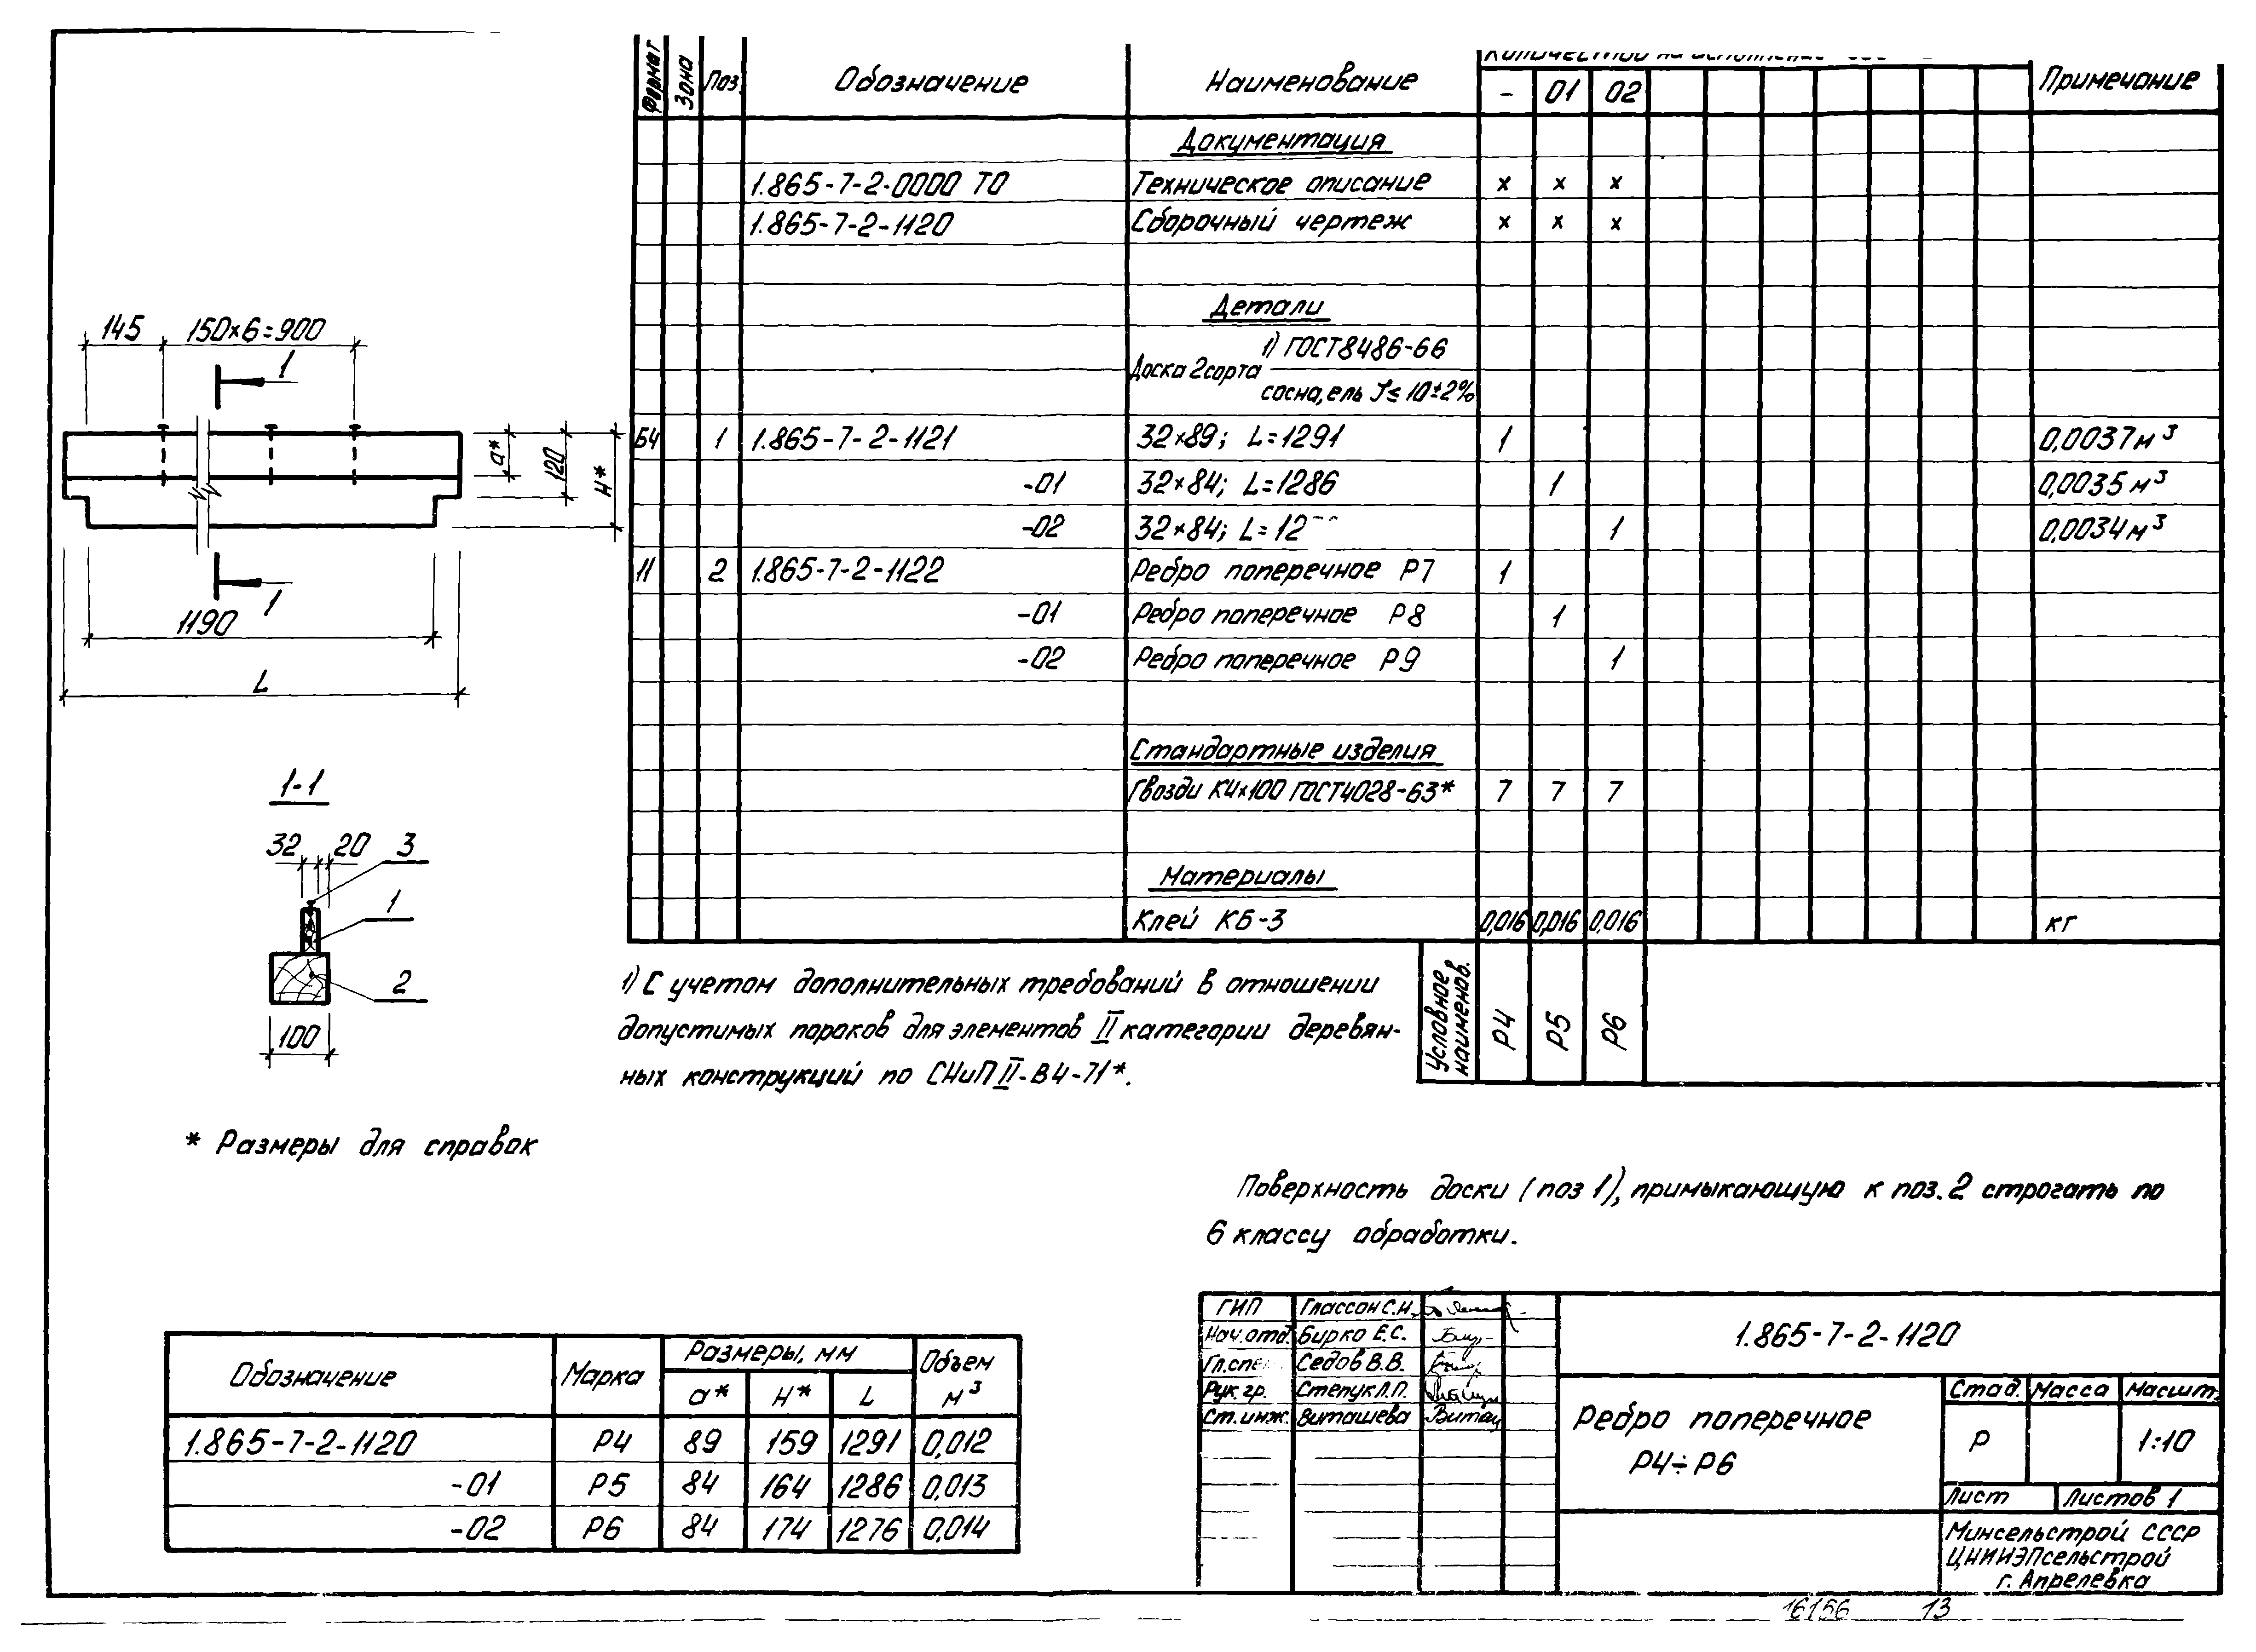 Формат Зона Поз. Обозначение Наименование Примечание
- 01 02
Документация
1.865-7-2-0000 ТО Техническое описание × × ×
1.865-7-2-1120 Сборочный чертеж × × ×
Детали
1) ГОСТ 8486-66
Доска 2 сорта
сосна, ель
БЧ 1 1.865-7-2-1121 32×89; L=1291 1 0,0037 м³
-01 32×84; L=1286 1 0,0035 м³
-02 32×84; L=12 1 0,0034 м³
11 2 1.865-7-2-1122 Ребро поперечное Р7 1
-01 Ребро поперечное Р8 1
-02 Ребро поперечное Р9 1
Стандартные изделия
Гвозди К4×100 ГОСТ4028-63* 7 7 7
Материалы
Клей КБ-3 0,016 0,016 0,016 кг
Условное наименов. Р4 Р5 Р6
145 150×6=900
1
а* 120 Н*
1
1190
L
1-1
32 20 3
1
2
100
1) С учетом дополнительных требований в отношении
допустимых пороков для элементов II категории деревян-
ных конструкций по СНиП II-В.4-71*.
* Размеры для справок
Поверхность доски (поз 1), примыкающую к поз. 2 строгать по
6 классу обработки.
Обозначение Марка Размеры, мм Объем м³
а* Н* L
1.865-7-2-1120 Р4 89 159 1291 0,012
-01 Р5 84 164 1286 0,013
-02 Р6 84 174 1276 0,014
ГИП Глассон С.Н.
Нач. отд. Бирко Е.С.
Гл.спе Седов В.В.
Рук. гр. Степук Л.П.
Ст. инж. Виташева
1.865-7-2-1120
Ребро поперечное
Р4÷Р6
Стад. Масса Масшт.
Р 1:10
Лист Листов 1
Минсельстрой СССР
ЦНИИЭПсельстрой
г. Апрелевка
16156 13